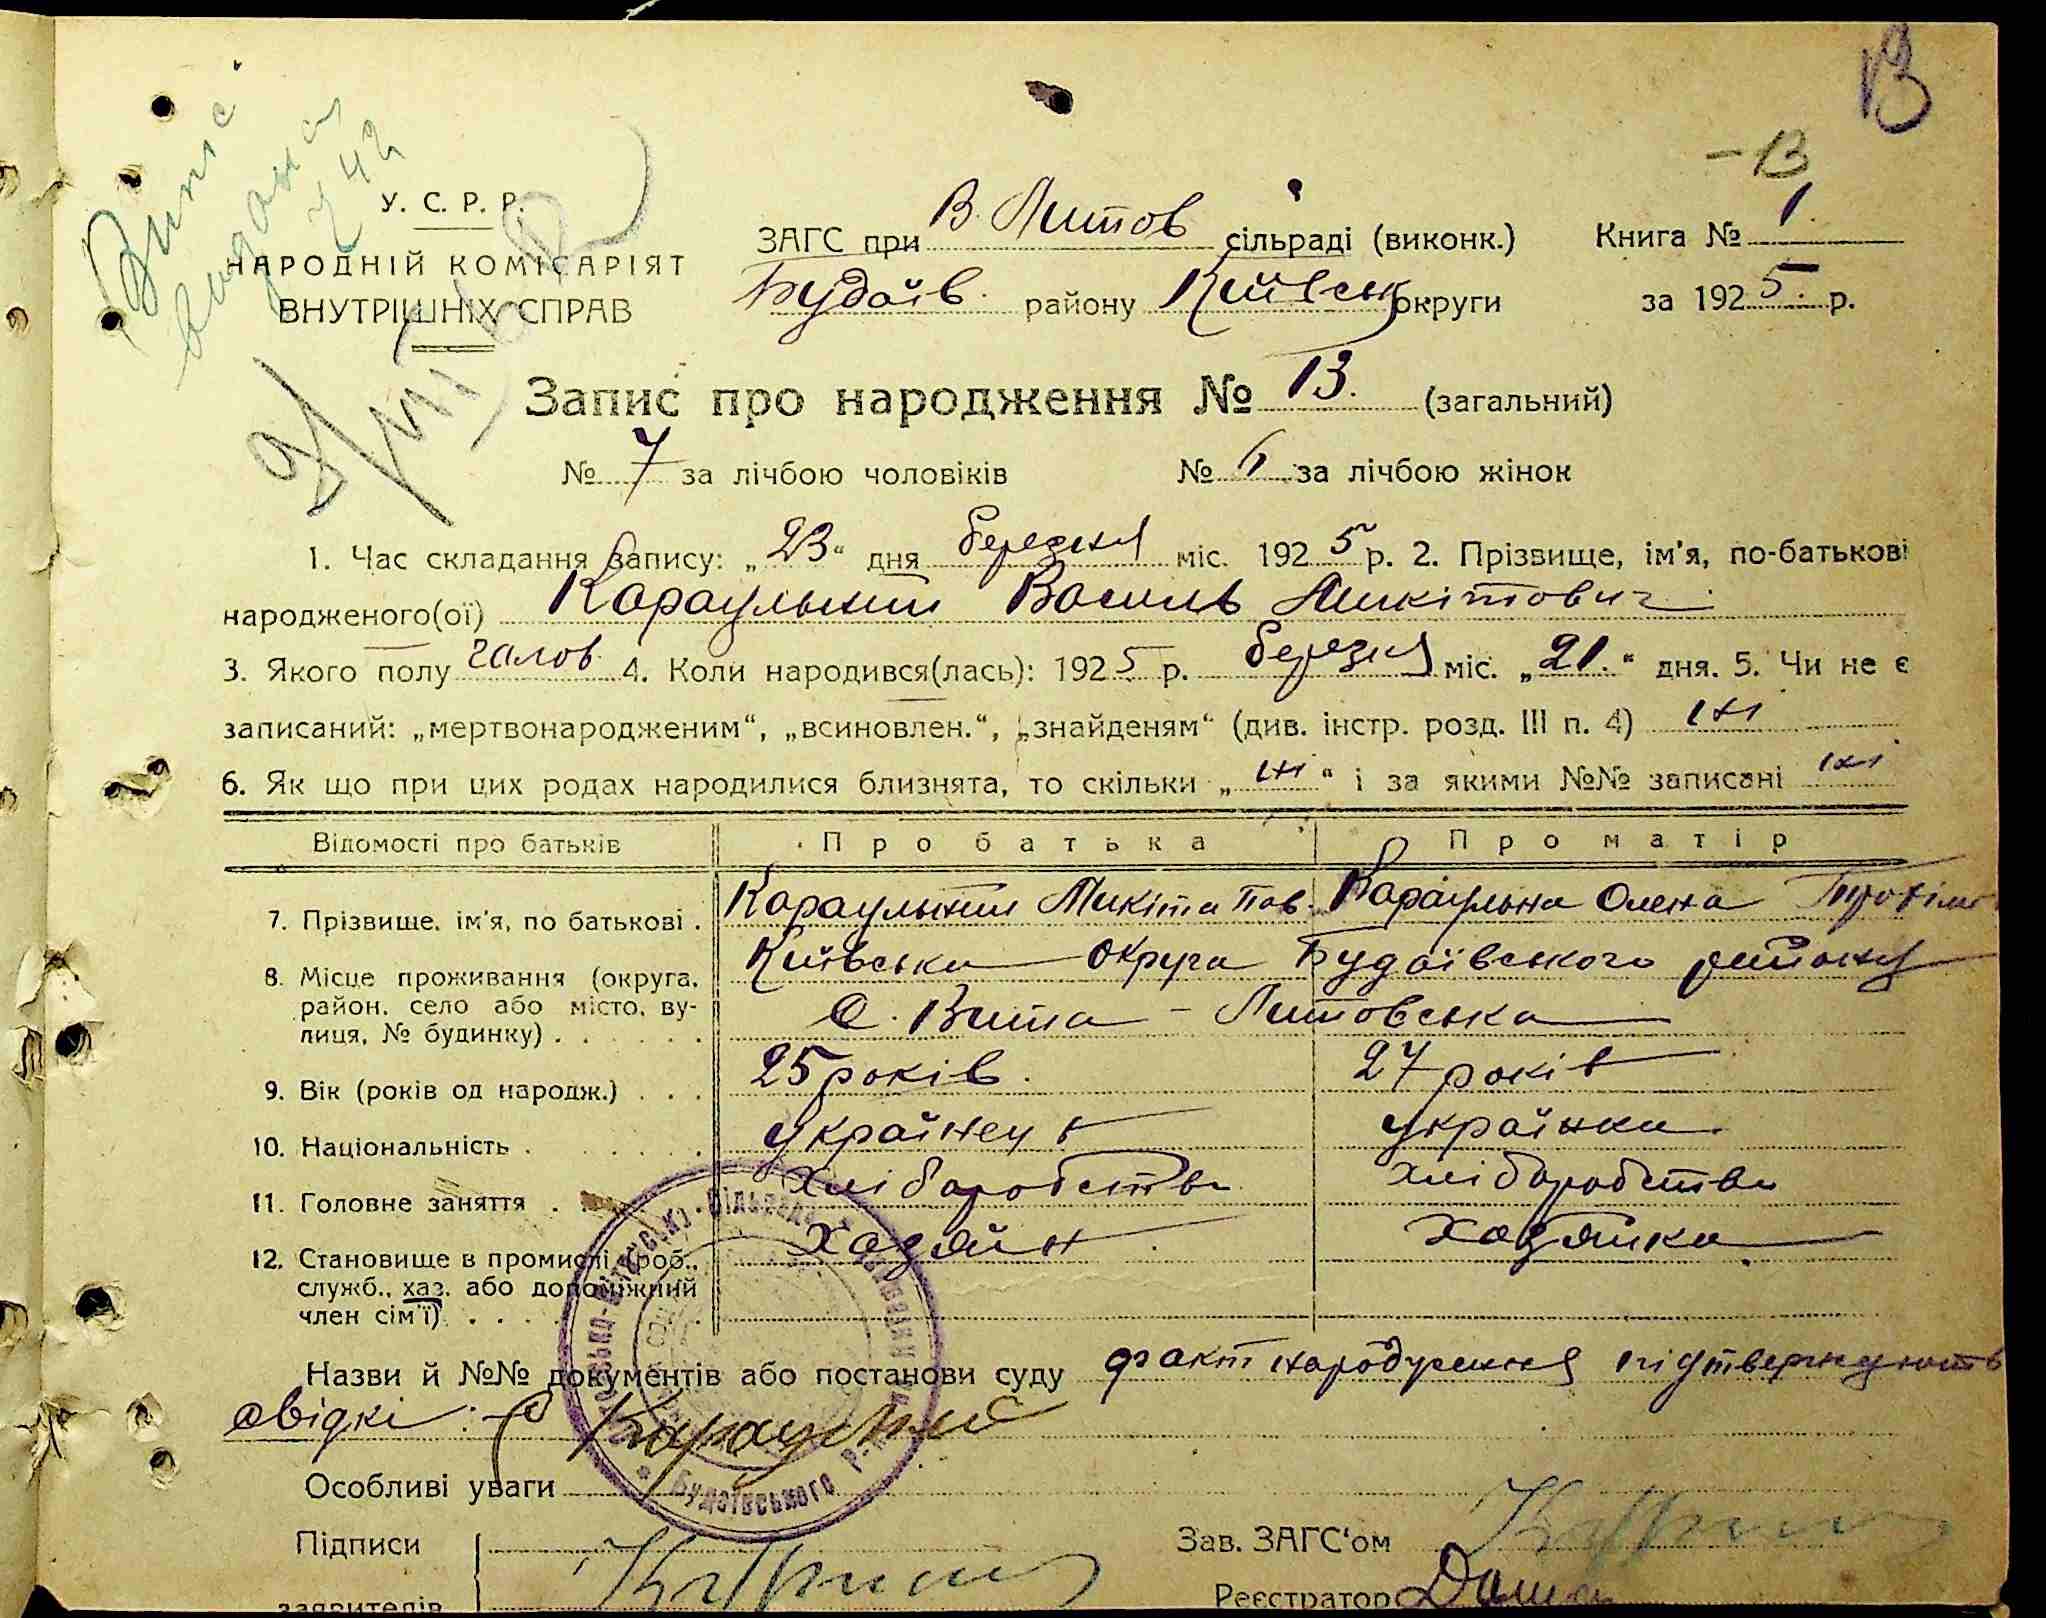 13
- 13
Випис
видана
У. С. Р. Р.
НАРОДНІЙ КОМІСАРІЯТ
ВНУТРІШНІХ СПРАВ
ЗАГС при В. Литов сільраді (виконк.) Книга № 1.
Будаїв. району Київськ округи за 1925. р.
Запис про народження № 13. (загальний)
№ 7 за лічбою чоловіків № 6 за лічбою жінок
1. Час складання запису: „23“ дня березня міс. 1925 р. 2. Прізвище, ім'я, по-батькові
народженого(ої) Караульний Василь Микітович
3. Якого полу чолов. 4. Коли народився(лась): 1925 р. березня міс. „21.“ дня. 5. Чи не є
записаний: „мертвонародженим“, „всиновлен.“, „знайденям“ (див. інстр. розд. III п. 4)
6. Як що при цих родах народилися близнята, то скільки „ “ і за якими №№ записані
Відомості про батьків Про батька Про матір
7. Прізвище, ім'я, по батькові . Караульний Микіта Пав. Караульна Олена Трохим
8. Місце проживання (округа, Київська округа Будаївського району
район, село або місто, ву-
лиця, № будинку) . . . . . . с. Вита - Литовська
9. Вік (років од народж.) . . . 25 років. 27 років
10. Національність . . . . . . українець українка
11. Головне заняття . . хліборобство хліборобство
12. Становище в промислі (роб., хазяїн хазяйка
служб., хаз. або допоміжний
член сім'ї) . . . . .
Назви й №№ документів або постанови суду факт народження підтверджують
свідкі: Караульний
Будаївського Р-
Особливі уваги
Підписи Зав. ЗАГС'ом
заявителів Реєстратор